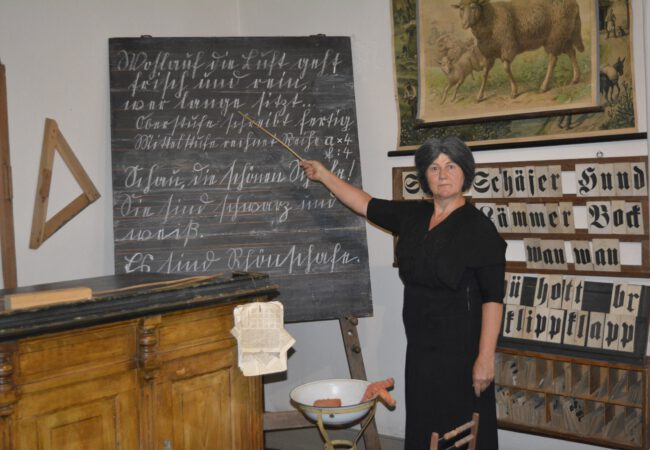 Wohlauf die Luft geht
frisch und rein,
wer lange sitzt..
Oberstufe schreibt fertig
Mittelstufe rechnet Reihe a x 4
: 4
Schau, die schönen Schafe!
Sie sind schwarz und
weiß.
Es sind Rhönschafe.
S Schäfer Hund
Lämmer Bock
wan wan
ü hott br
klippklapp